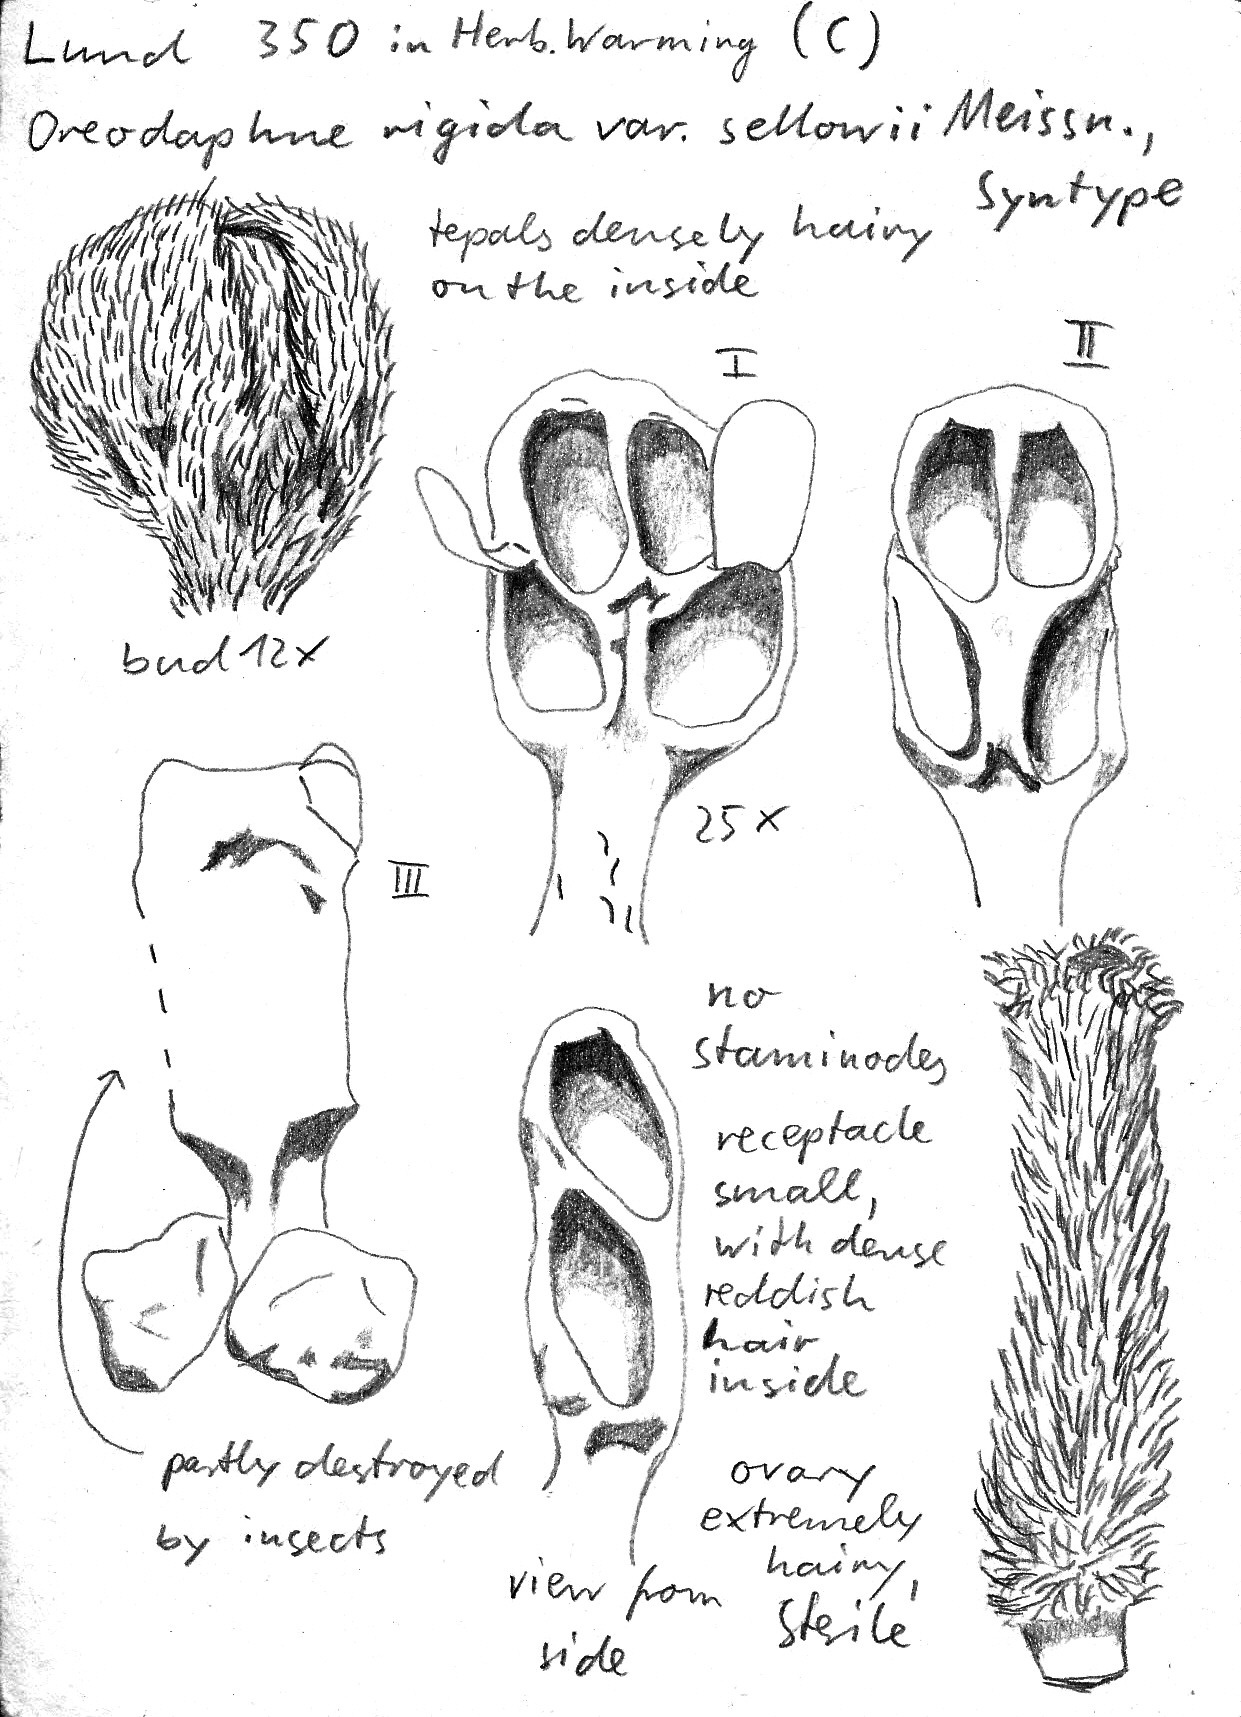 Lund 350 in Herb. Warming (C)
Oreodaphne rigida var. sellowii Meissn.,
Syntype
tepals densely hairy
on the inside
I
II
bud 12x
25x
III
no
staminodes
receptacle
small,
with dense
reddish
hair
inside
partly destroyed
by insects
ovary
extremely
hairy,
sterile
view from
side